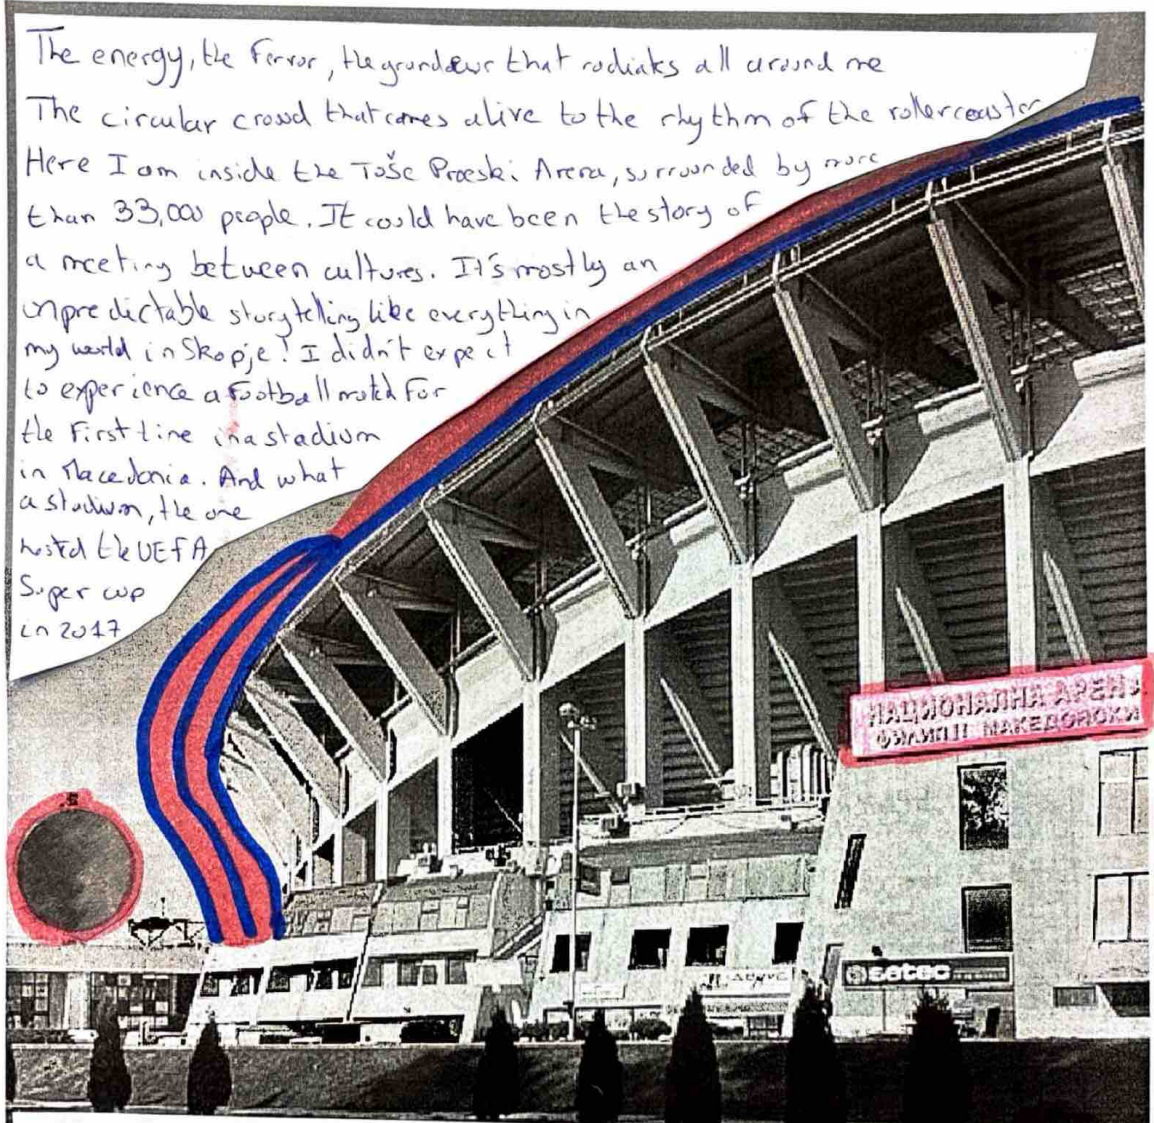 The energy, the fervor, the grandeur that radiates all around me
The circular crowd that comes alive to the rhythm of the rollercoaster
Here I am inside the Toše Proeski Arena, surrounded by more
than 33,000 people. It could have been the story of
a meeting between cultures. It's mostly an
unpredictable storytelling like everything in
my world in Skopje! I didn't expect
to experience a football match for
the first time in a stadium
in Macedonia. And what
a stadium, the one
hosted the UEFA
Super cup
in 2017
НАЦИОНАЛНА АРЕНА
ФИЛИП II МАКЕДОНСКИ
setec